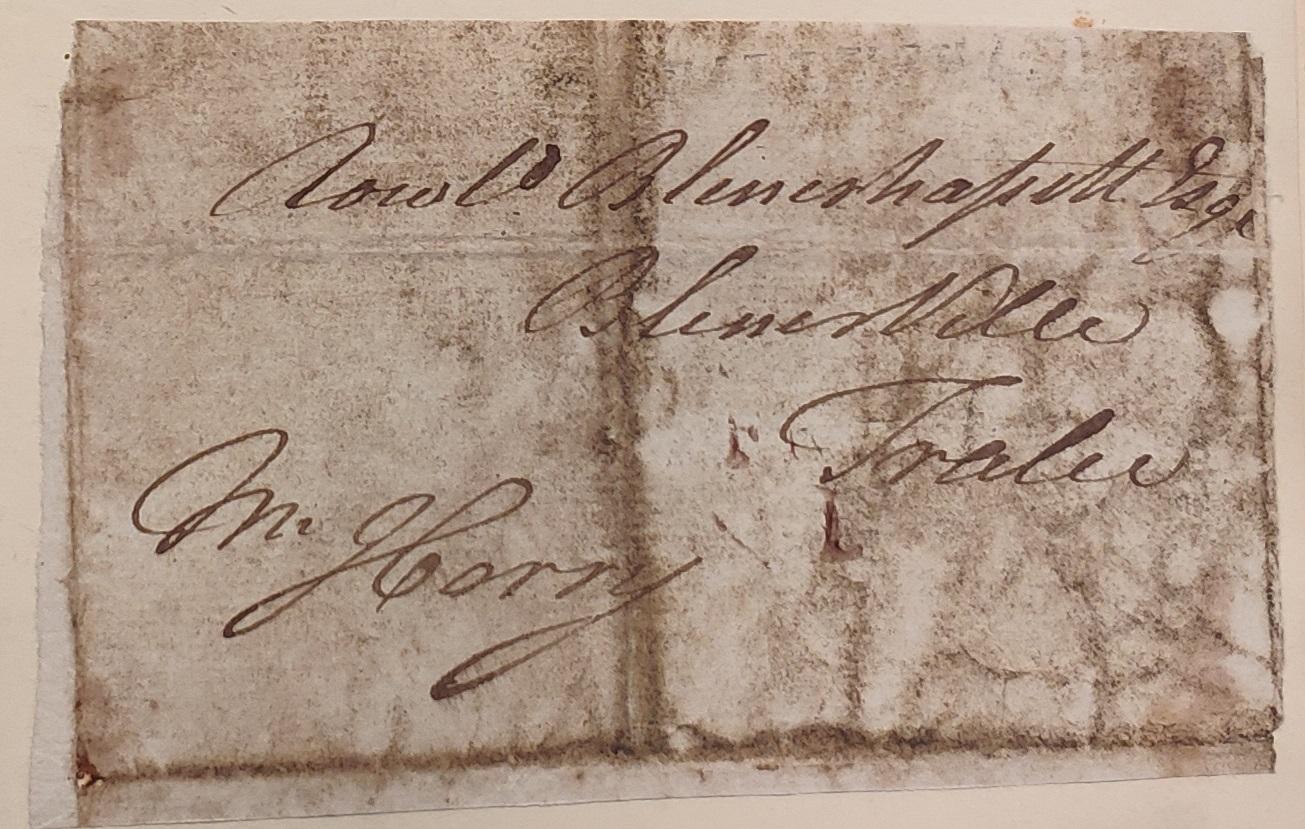 Rowld Blenerhassett Esqr
Blenerville
Tralee
Mr Henry